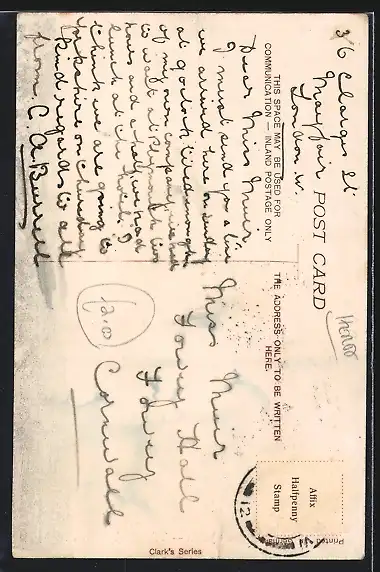 3/6 Clarges St
Mayfair
London W.
POST CARD
THIS SPACE MAY BE USED FOR
COMMUNICATION — INLAND POSTAGE ONLY
THE ADDRESS ONLY TO BE WRITTEN
HERE.
Dear Miss Muir,
I must send you a line
we arrived here on Sunday
at 9 o'clock tired enough
of my own company we had
to wait at Plymouth two
hours and a half we had
lunch at the hotel. I
think we are going to
Yorkshire on Thursday
kind regards to all
from C A Burrell
Miss Muir
Fowey Hall
Fowey
Cornwall
Affix
Halfpenny
Stamp
Printed
12
Clark's Series